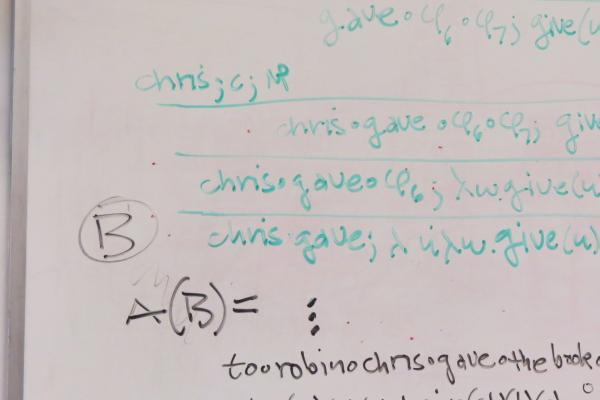 gave∘φ₆∘φ₇; give(u
chris; c; NP
chris∘gave∘φ₆∘φ₇; giv
chris∘gave∘φ₆; λw.give(u
B chris∘gave; λ λw.give(u)
A(B)= ⋮
to∘robin∘chris∘gave∘the∘book∘